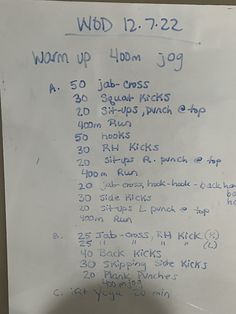 WOD 12.7.22
Warm up 400m jog
A. 50 jab-cross
30 Squat Kicks
20 Sit-ups, punch @ top
400m Run
50 hooks
30 RH Kicks
20 Sit-ups R. punch @ top
400m Run
20 jab-cross, hook-hook-back
30 Side Kicks
20 Sit-ups L punch @ top
400m Run
B. 25 Jab-cross, RH Kick (R)
25 " " " (L)
40 Back Kicks
30 Skipping Side Kicks
20 Plank Punches
400m jog
C. Yoga 20 min